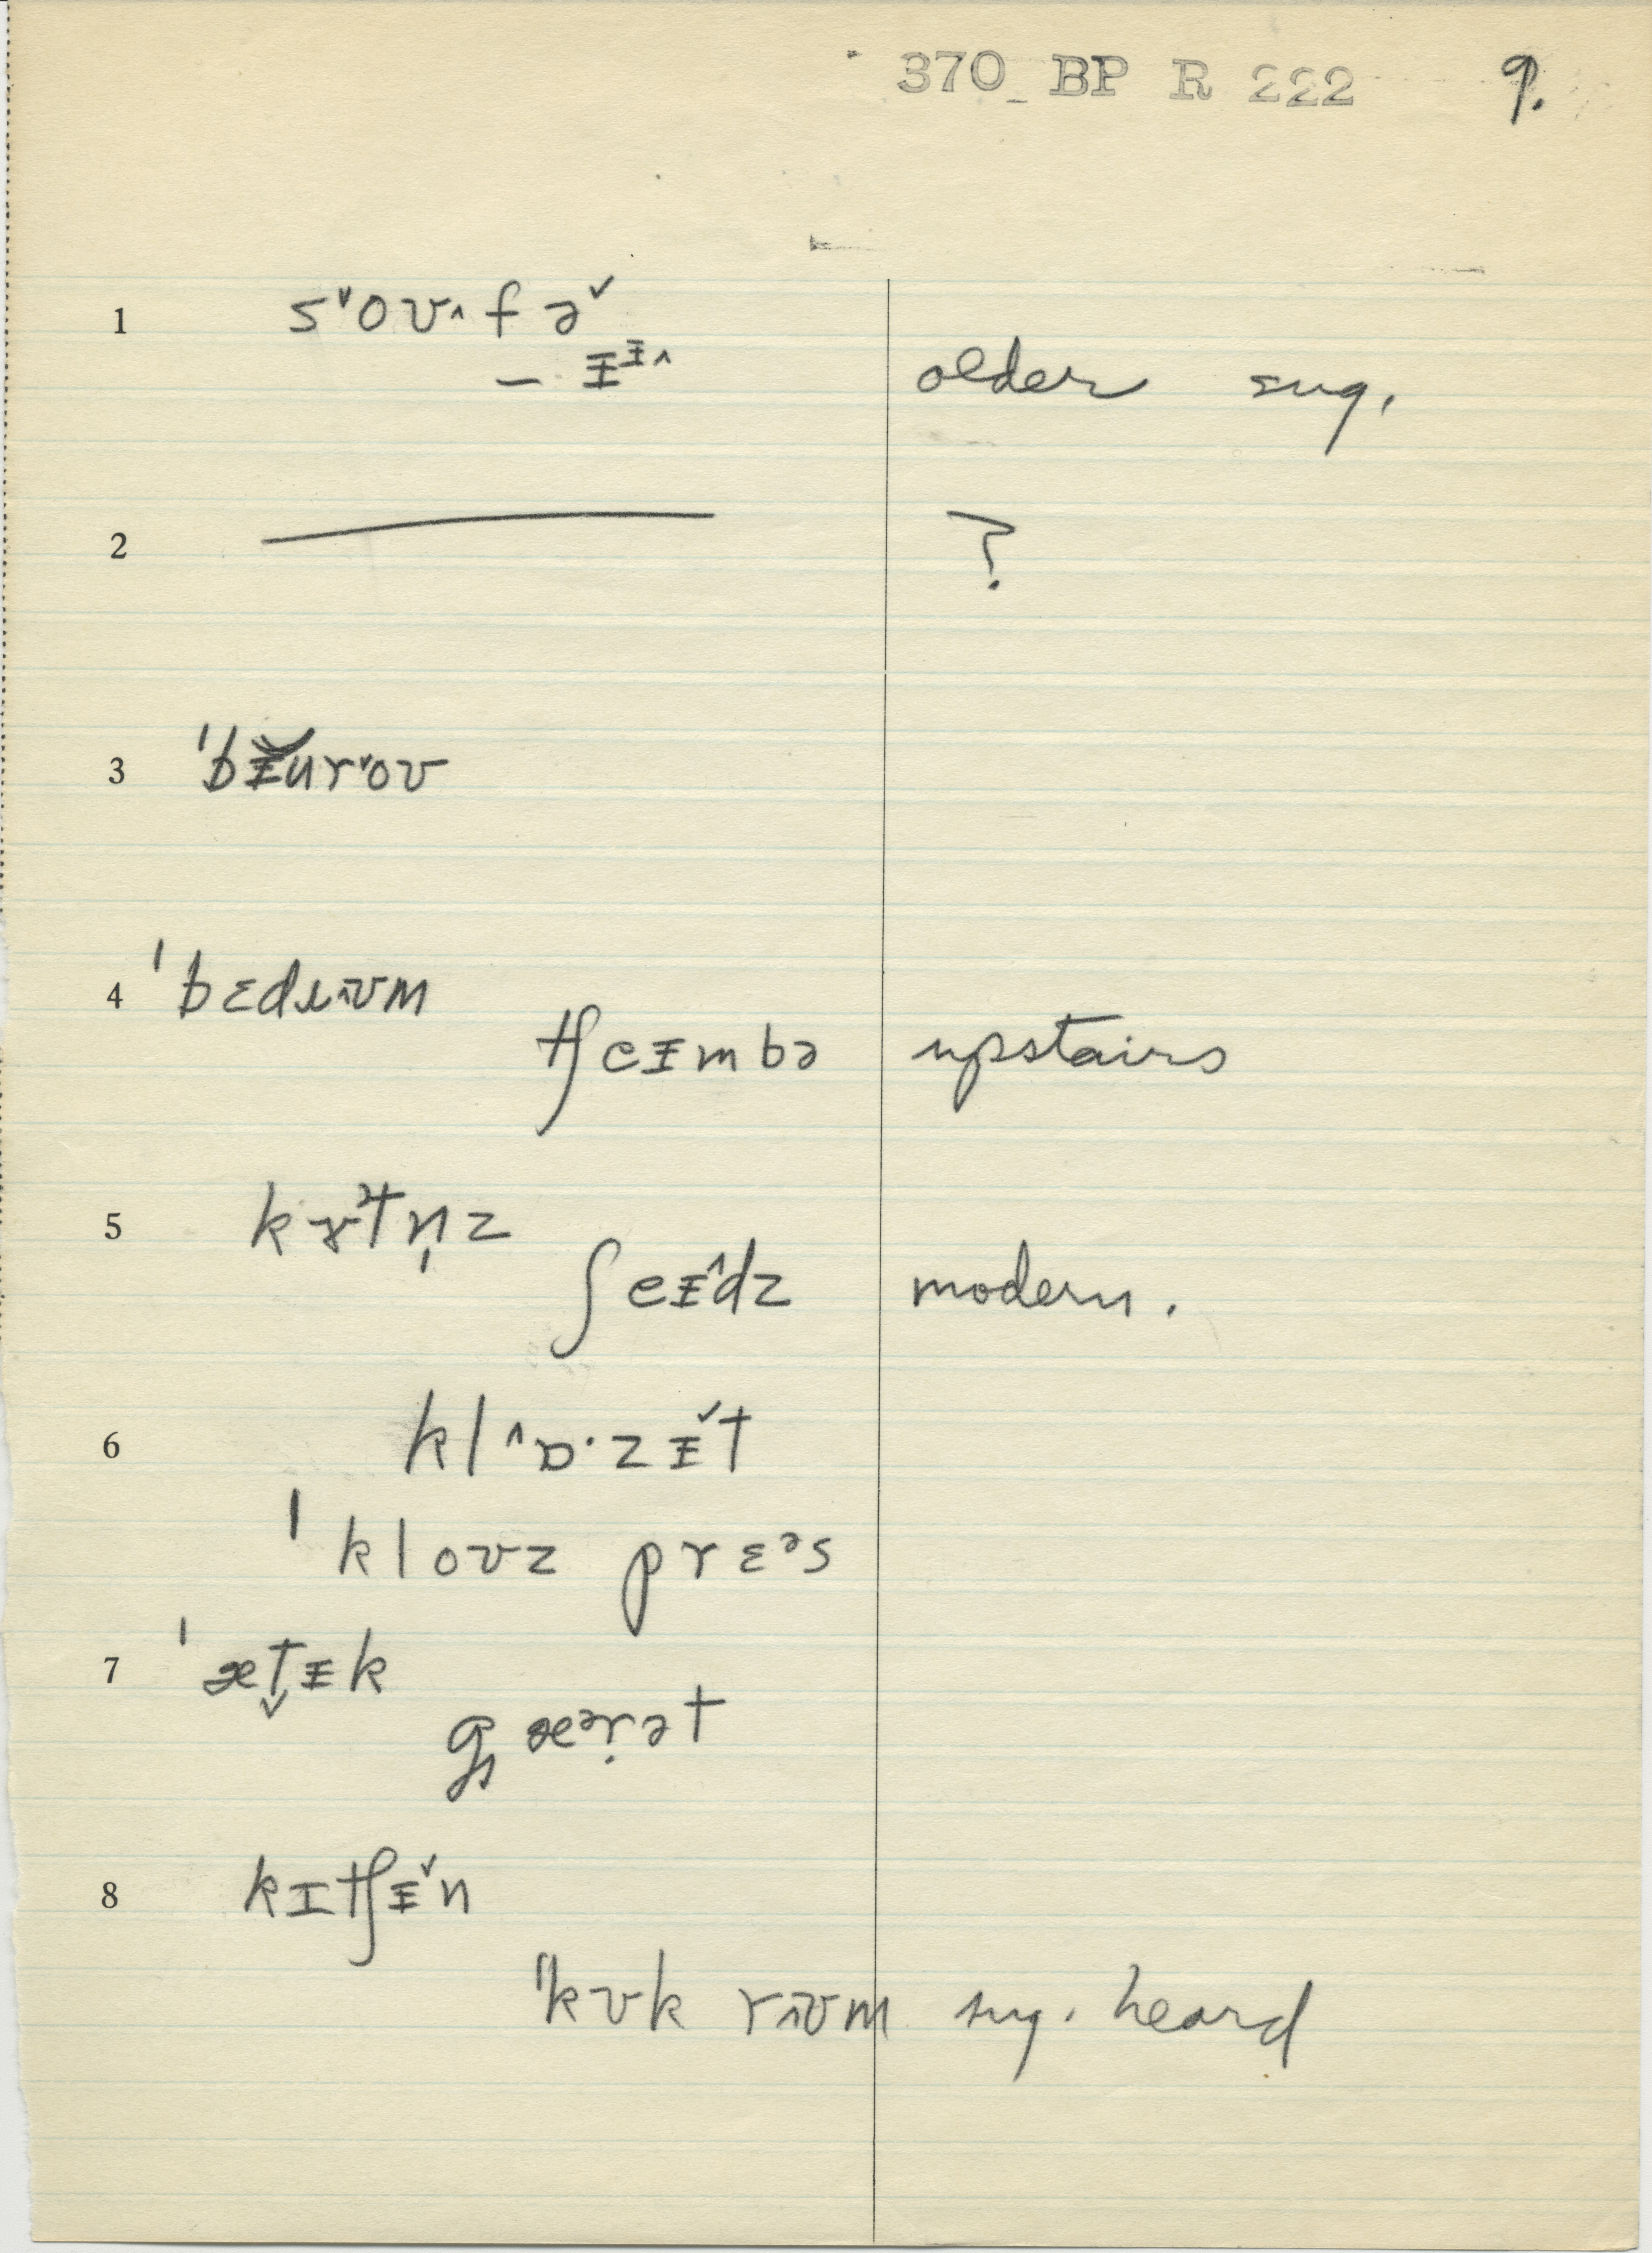 370_ BP R 222 9.
1 s˅oʊ˄fə˅
— ᵻᵻ˄ older sug.
2 —— ?
3 ˈbᵻur˅oʊ
4 ˈbɛdɹ˄ʊm
tʃeᵻmbə upstairs
5 kɤɜtn̩z
ʃeᵻ˄dz modern.
6 kl˄ɒ·zᵻ˅t
ˈkloʊzprɛəs
7 ˈæt̬ᵻk
gæərət
8 kɪtʃᵻ˅n
ˈkʊk r˄ʊm sug. heard